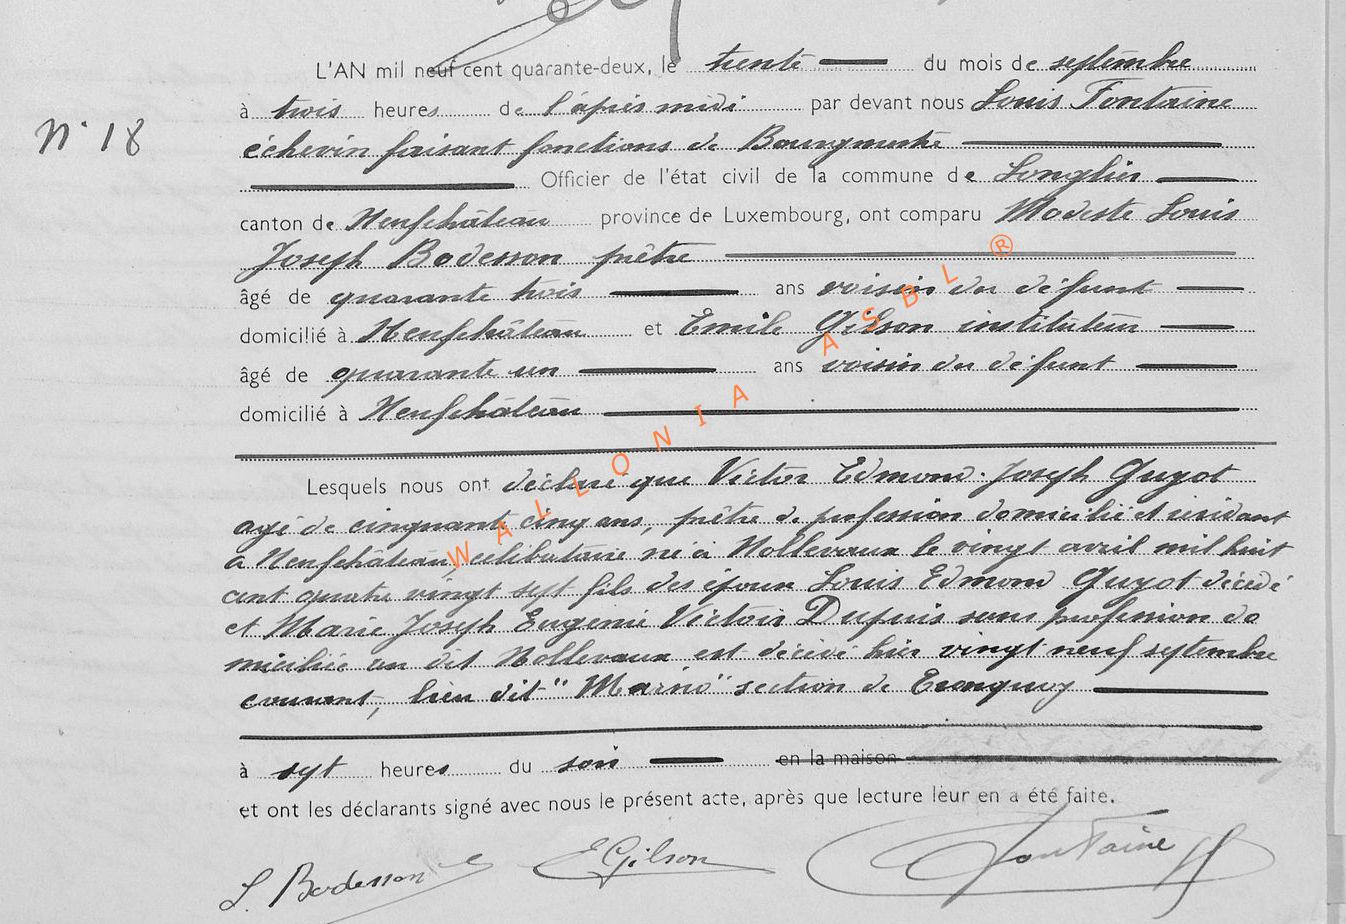 L'AN mil neuf cent quarante-deux, le trente du mois de septembre
à trois heures de l'après midi par devant nous Louis Fontaine
N° 18
échevin faisant fonctions de Bourgmestre
Officier de l'état civil de la commune de Longlier
canton de Neufchâteau province de Luxembourg, ont comparu Modeste Louis
Joseph Bodesson prêtre
âgé de quarante trois ans voisin du défunt
domicilié à Neufchâteau et Emile Gilson instituteur
âgé de quarante un ans voisin du défunt
domicilié à Neufchâteau
Lesquels nous ont déclaré que Victor Edmond Joseph Guyot
agé de cinquante cinq ans, prêtre de profession domicilié et résidant
à Neufchâteau, célibataire né à Nollevaux le vingt avril mil huit
cent quatre vingt sept fils des époux Louis Edmond Guyot décédé
et Marie Joseph Eugénie Victoire Dupuis sans profession do
miciliée au dit Nollevaux est décédé hier vingt neuf septembre
courant, lieu dit "Marno" section de
à sept heures du soir en la maison
et ont les déclarants signé avec nous le présent acte, après que lecture leur en a été faite.
L. Bodesson EGilson Fontaine
WALLONIA ASBL ®